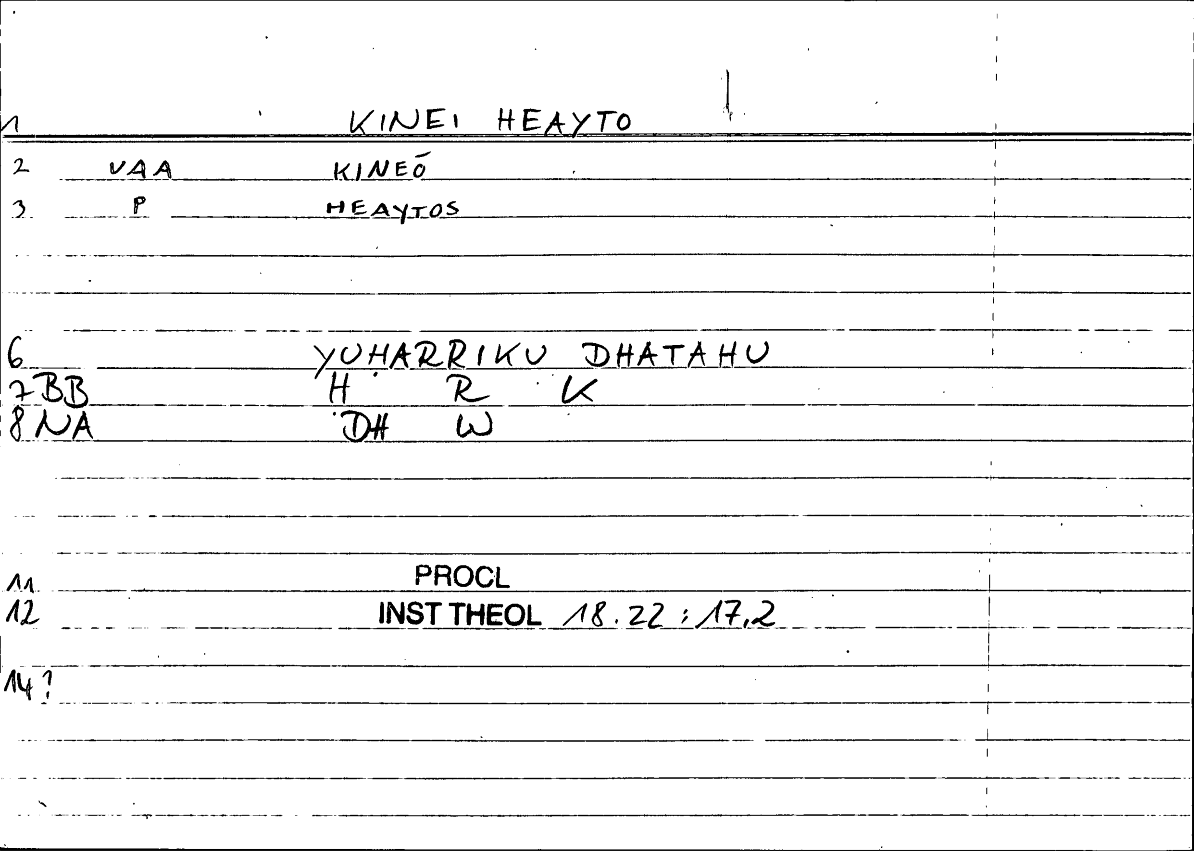 1 KINEI HEAYTO
2 VAA KINEŌ
3 P HEAYTOS
6 YUHARRIKU DHATAHU
7 BB H R K
8 NA DH W
11 PROCL
12 INST THEOL 18.22 : 17,2
14 ?